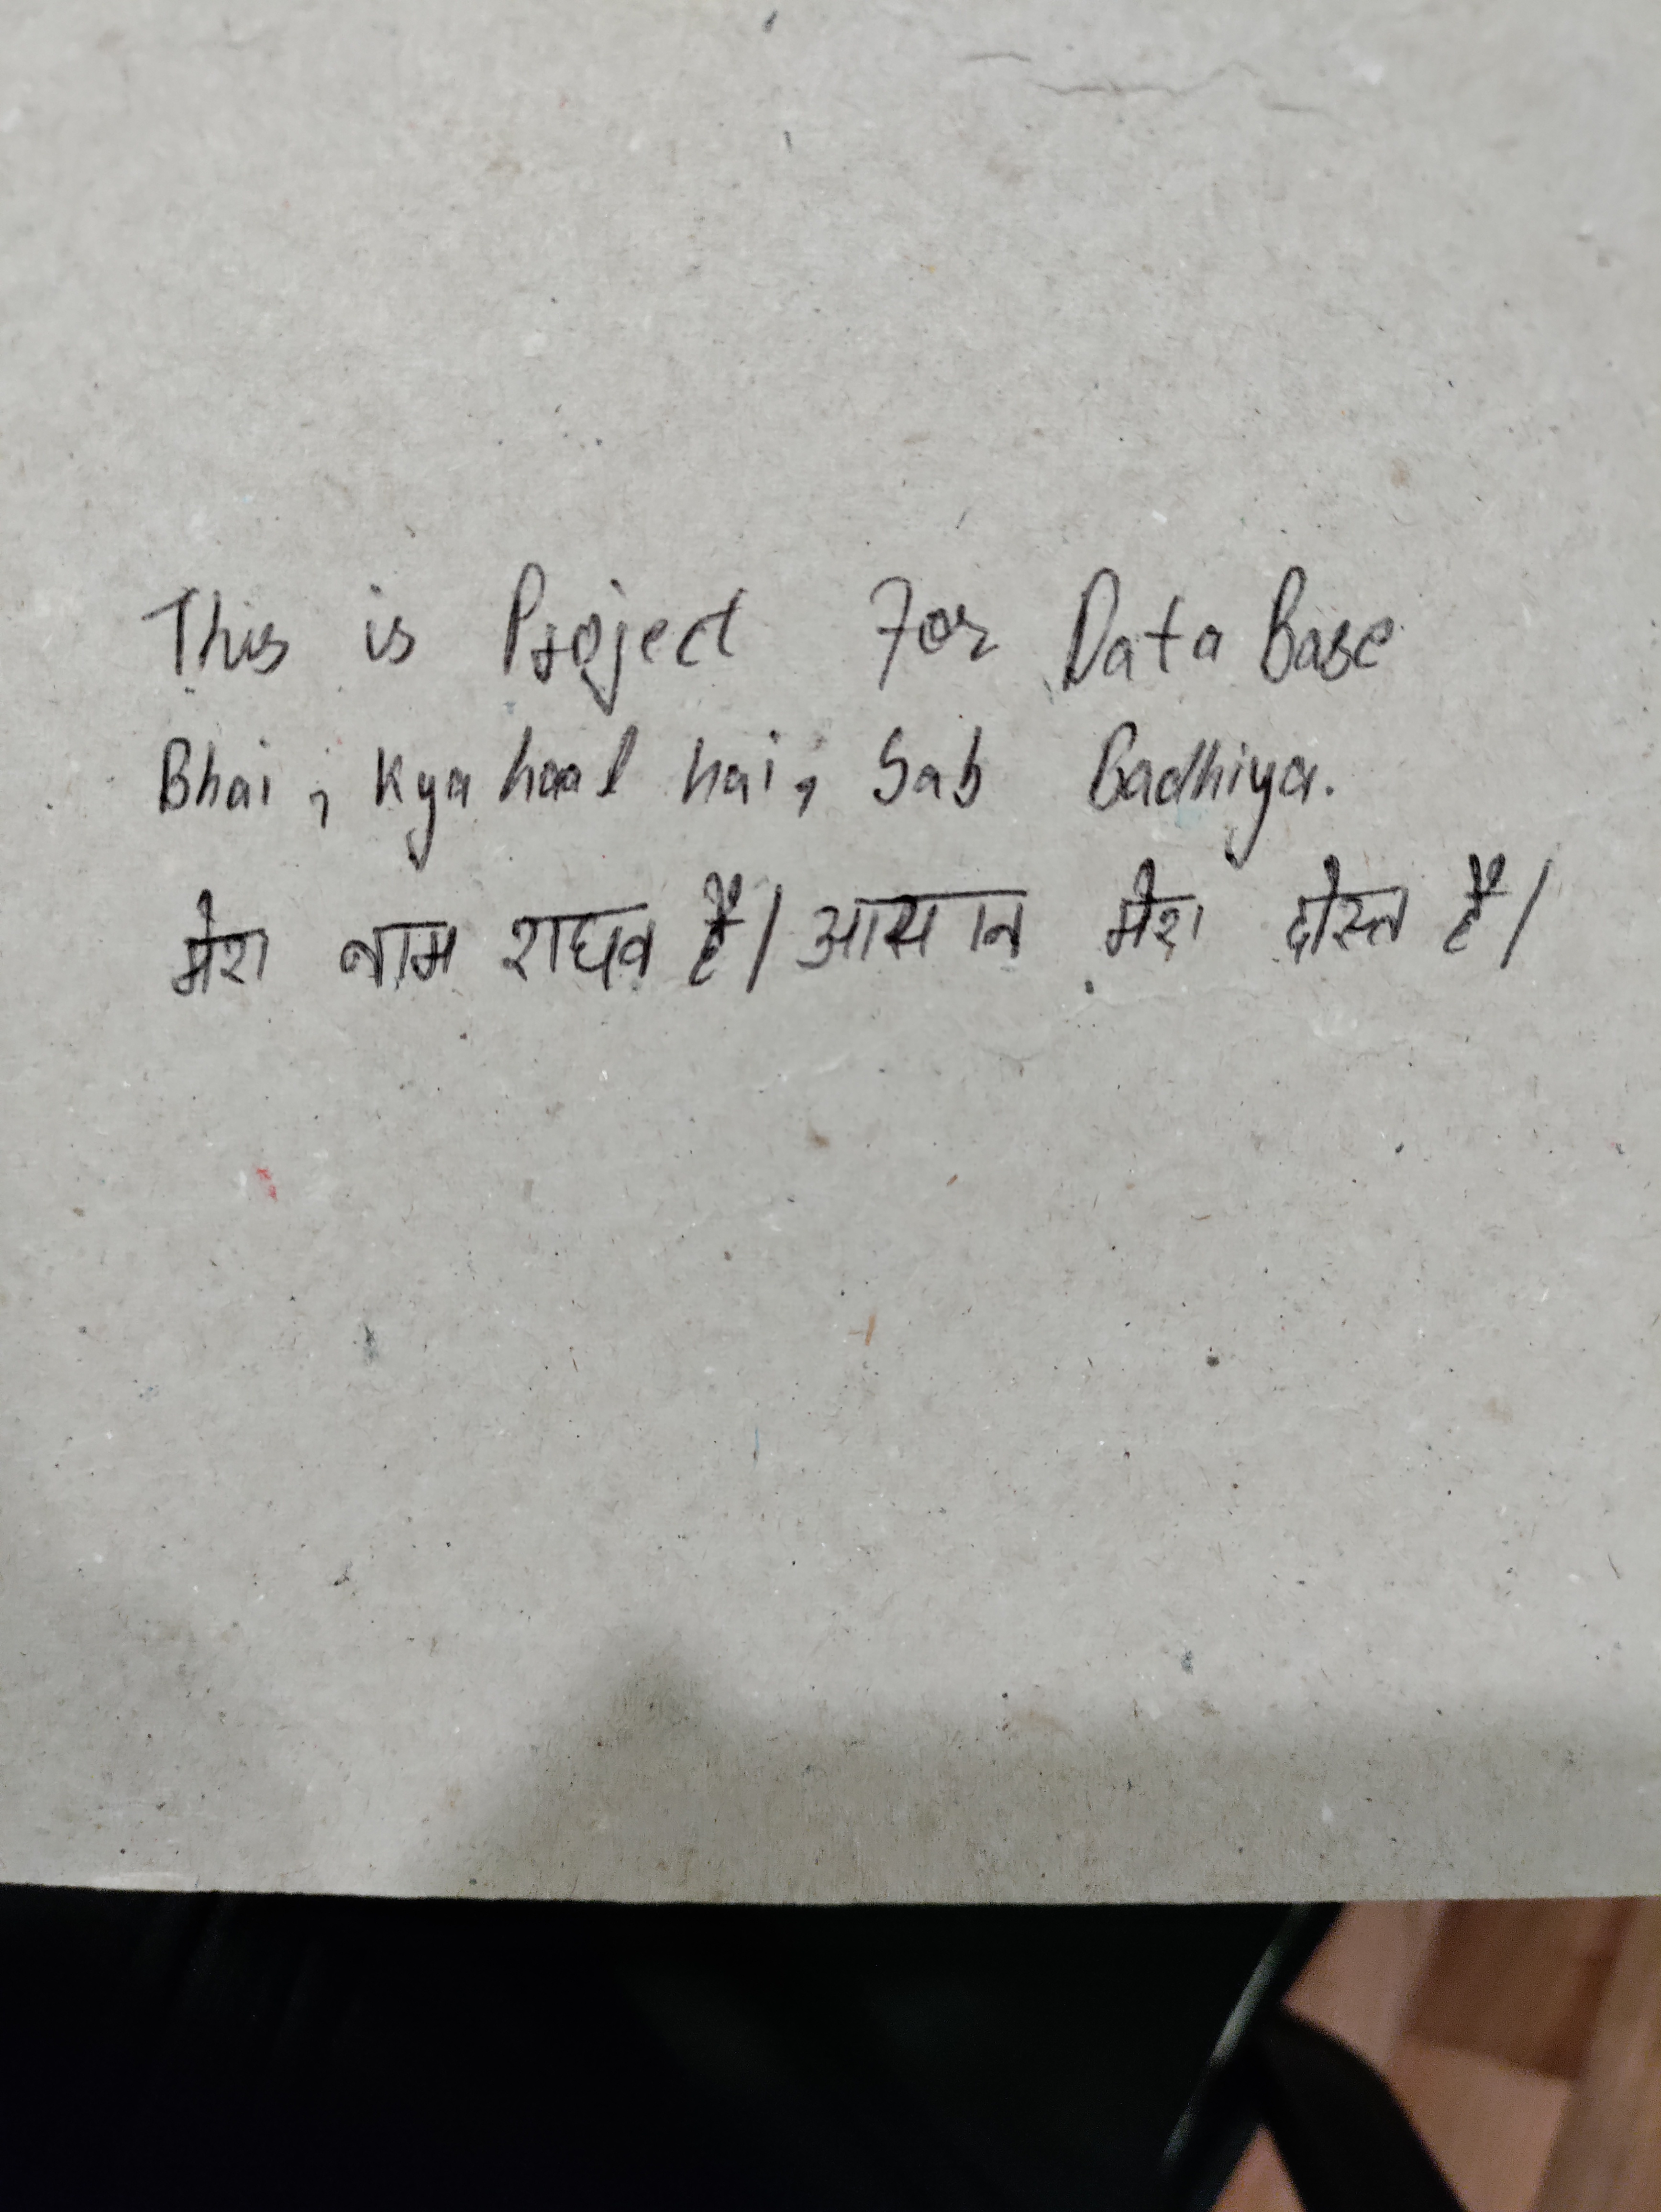 This is Project For Data Base
Bhai, Kya haal hai, Sab Badhiya.
मेरा नाम राघव हैं। आसान मेरा दोस्त हैं।